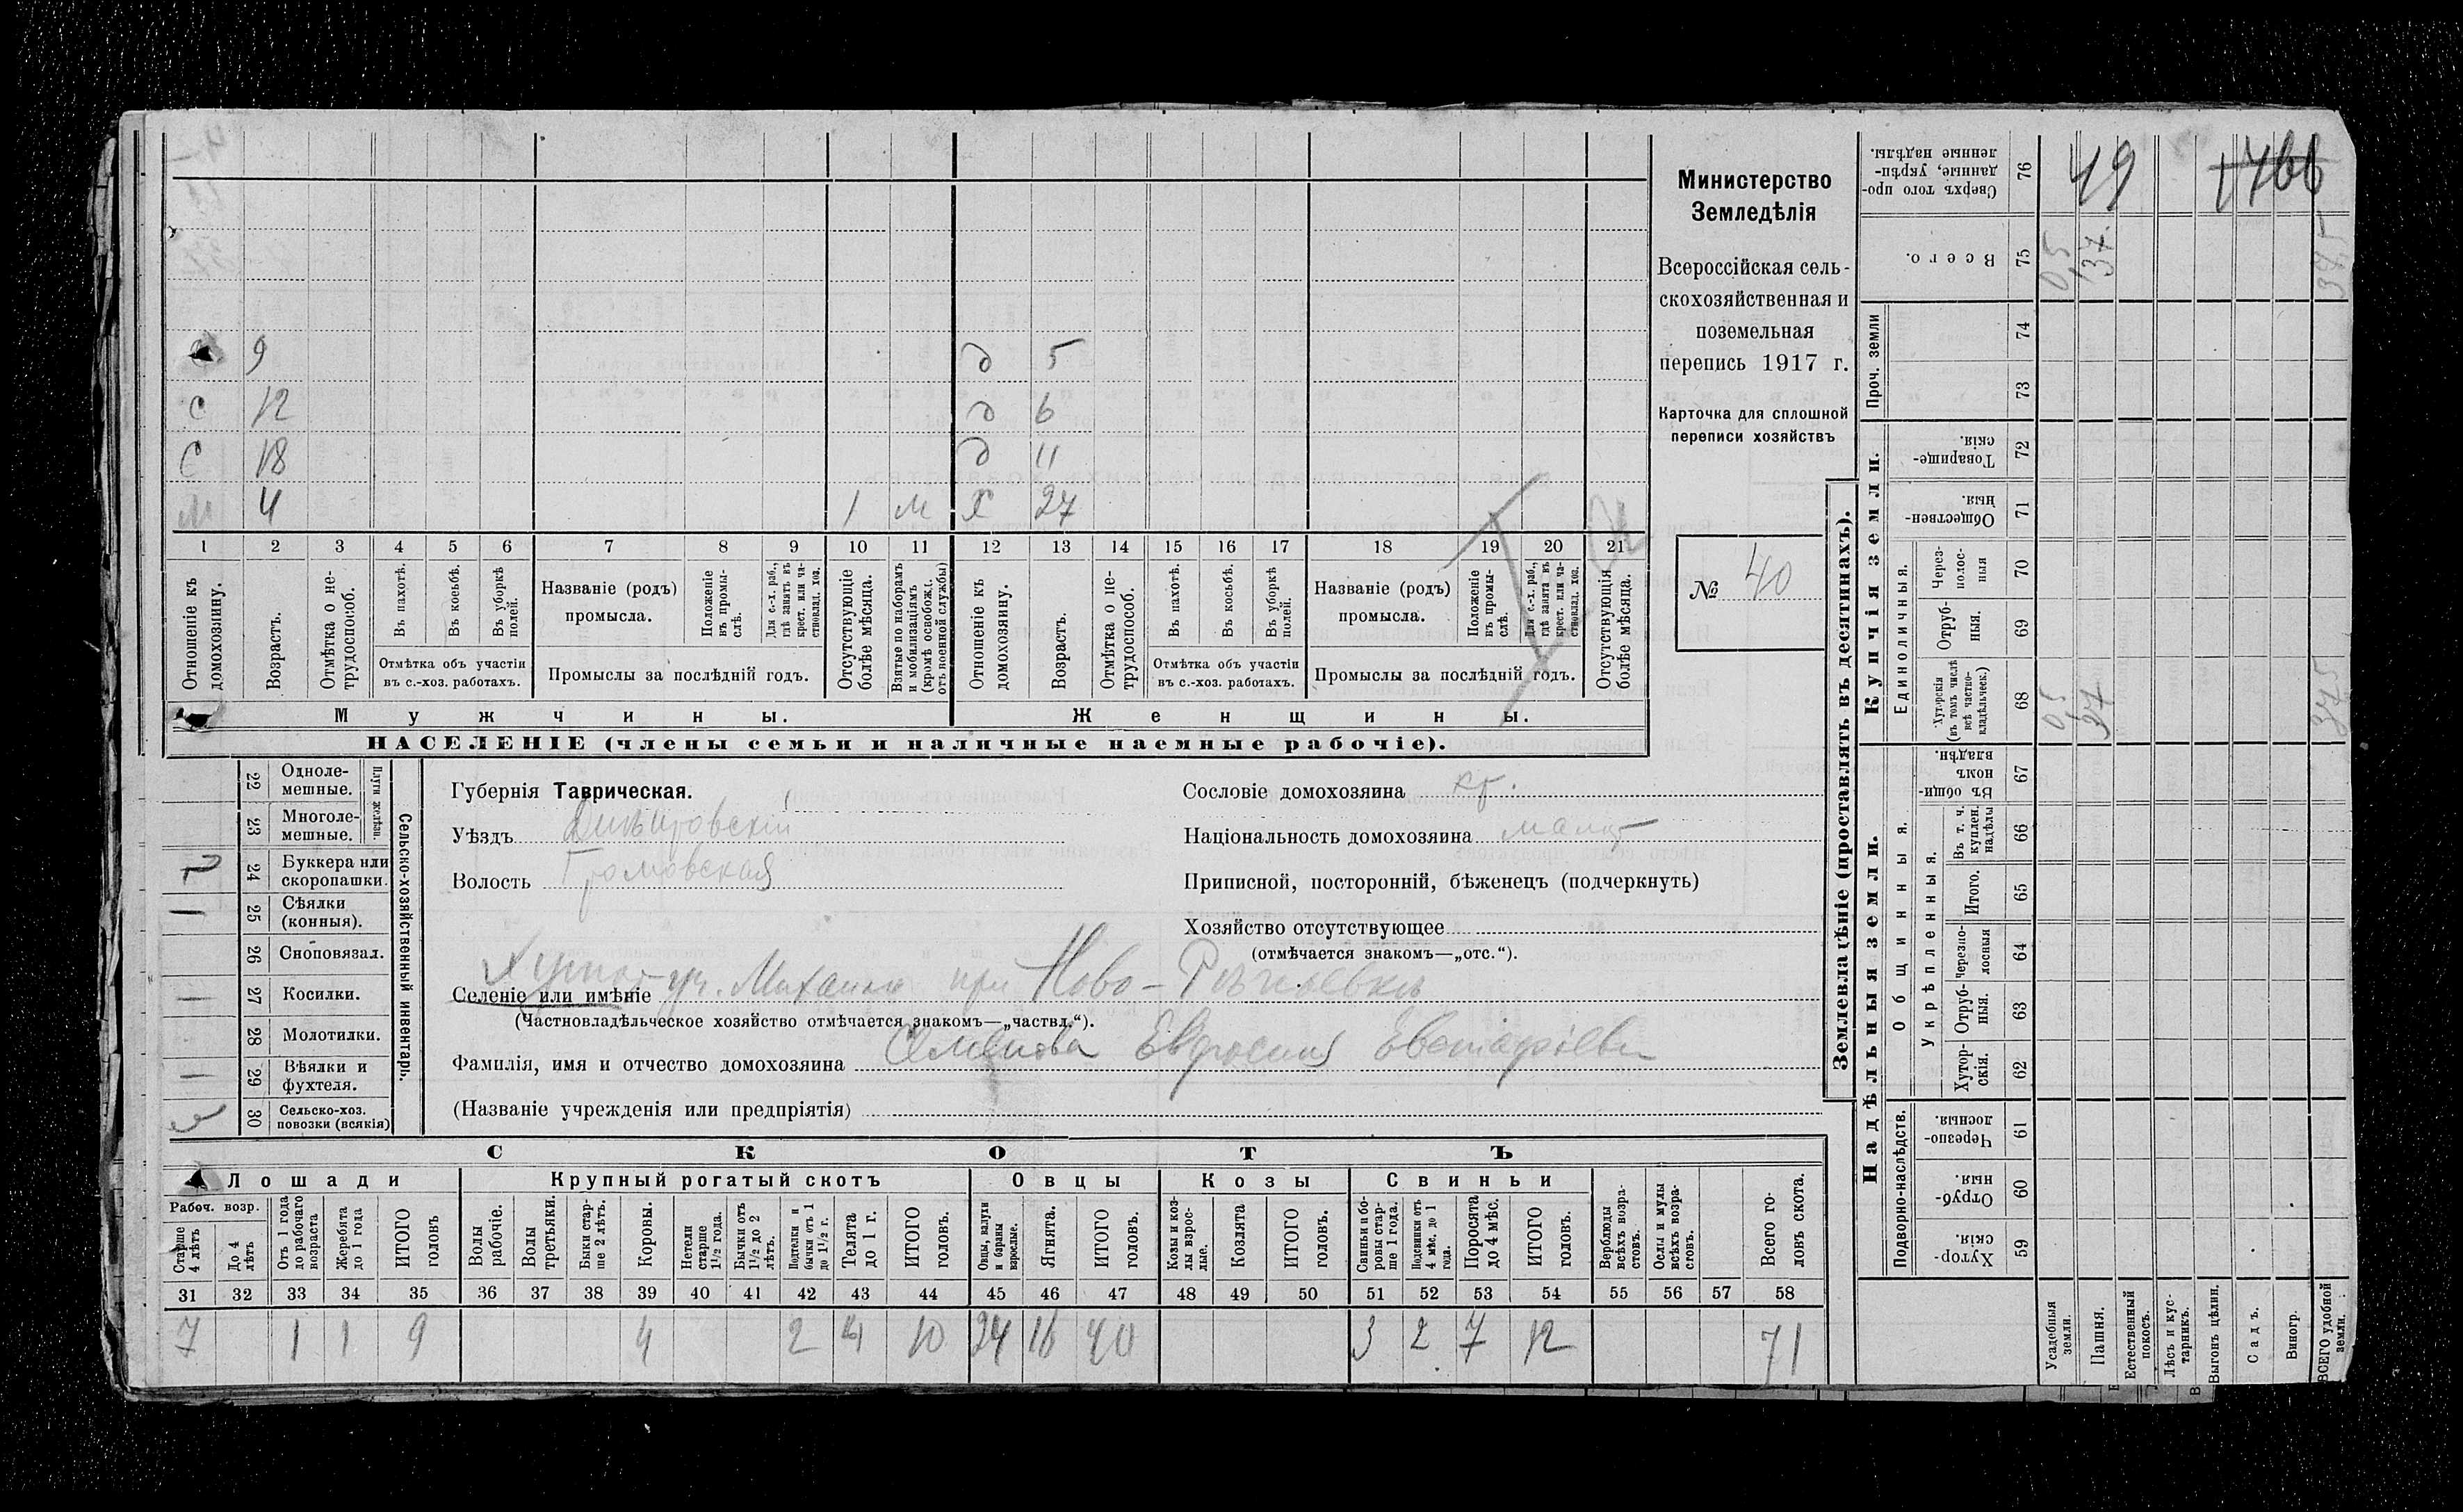 49
1766
Министерство
Земледѣлія
Всероссійская сель-
скохозяйственная и
поземельная
перепись 1917 г.
Карточка для сплошной
переписи хозяйствъ
№ 40
9 д 5
с 12 д 6
с 18 д 11
м 4 1 м х 27
1 2 3 4 5 6 7 8 9 10 11 12 13 14 15 16 17 18 19 20 21
Отношеніе къ домохозяину.
Возрастъ.
Отмѣтка о не-трудоспособ.
Въ пахотѣ.
Въ косьбѣ.
Въ уборкѣ полей.
Отмѣтка объ участіи
въ с.-хоз. работахъ.
Названіе (родъ)
промысла.
Положеніе въ промы-слѣ.
Для с.-х. раб., гдѣ занятъ въ крест. или ча-стновлад. хоз.
Промыслы за послѣдній годъ.
Отсутствующіе болѣе мѣсяца.
Взятые по наборамъ и мобилизаціямъ (кромѣ освобожд. отъ военной службы)
Отношеніе къ домохозяину.
Возрастъ.
Отмѣтка о не-трудоспособ.
Въ пахотѣ.
Въ косьбѣ.
Въ уборкѣ полей.
Отмѣтка объ участіи
въ с.-хоз. работахъ.
Названіе (родъ)
промысла.
Положеніе въ промы-слѣ.
Для с.-х. раб., гдѣ занята въ крест. или ча-стновлад. хоз.
Промыслы за послѣдній годъ.
Отсутствующія болѣе мѣсяца.
Мужчины.
Женщины.
НАСЕЛЕНІЕ (члены семьи и наличные наемные рабочіе).
Сельско-хозяйственный инвентарь.
Плуги желѣзн.
22 Одноле-мешные.
23 Многоле-мешные.
2 24 Буккера или скоропашки.
1 25 Сѣялки (конныя).
26 Сноповязал.
1 27 Косилки.
28 Молотилки.
1 29 Вѣялки и фухтеля.
30 Сельско-хоз. повозки (всякія)
Губернія Таврическая.
Уѣздъ Днѣпровскій
Волость Громовская
Сословіе домохозяина кр.
Національность домохозяина малор
Приписной, посторонній, бѣженецъ (подчеркнуть)
Хозяйство отсутствующее
(отмѣчается знакомъ—„отс.“).
Хутор
Селеніе или имѣніе при Ново-
(Частновладѣльческое хозяйство отмѣчается знакомъ—„частвл.“).
Фамилія, имя и отчество домохозяина Семенова Евфросинія Евстафіевн
(Названіе учрежденія или предпріятія)
СКОТЪ
Лошади Крупный рогатый скотъ Овцы Козы Свиньи
Рабоч. возр.
Старше 4 лѣтъ
До 4 лѣтъ
Отъ 1 года до рабочаго возраста
Жеребята до 1 года
ИТОГО головъ
Волы рабочіе.
Волы третьяки.
Быки стар-ше 2 лѣтъ.
Коровы.
Нетели старше 1½ года.
Бычки отъ 1½ до 2 лѣтъ.
Подтелки и бычки отъ 1 до 1½ г.
Телята до 1 г.
ИТОГО головъ.
Овцы, валухи и бараны взрослые.
Ягнята.
ИТОГО головъ.
Козы и коз-лы взрос-лые.
Козлята
ИТОГО головъ.
Свиньи и бо-ровы стар-ше 1 года.
Подсвинки отъ 4 мѣс. до 1 года.
Поросята до 4 мѣс.
ИТОГО головъ.
Верблюды всѣхъ возра-стовъ.
Ослы и мулы всѣхъ возра-стовъ.
Всего го-ловъ скота.
31 32 33 34 35 36 37 38 39 40 41 42 43 44 45 46 47 48 49 50 51 52 53 54 55 56 57 58
7 1 1 9 4 2 4 10 24 16 40 3 2 7 12 71
Землевладѣніе (проставлять въ десятинахъ).
Купчія земли.
Надѣльныя земли.
Сверхъ того про-данные, укрѣп-ленные надѣлы. 76
Всего. 75 0,5 37 37,5
Проч. земли 74
73
Товарище-скія. 72
Обществен-ныя. 71
Единоличныя.
Через-полос-ныя 70
Отруб-ныя. 69
Хуторскія (въ томъ числѣ всѣ частно-владѣльческ.) 68 0,5 37 37,5
Общинныя.
Въ общи-номъ владѣн. 67
Укрѣпленныя.
Въ т. ч. куплен. надѣлы 66
Итого. 65
Черезпо-лосныя 64
Отруб-ныя. 63
Хутор-скія. 62
Подворно-наслѣдств.
Черезпо-лосныя. 61
Отруб-ныя. 60
Хутор-скія. 59
Усадебныя земли.
Пашня.
Естественный покосъ.
Лѣсъ и кус-тарникъ.
Выгонъ цѣлин.
Садъ.
Виногр.
ВСЕГО удобной земли.